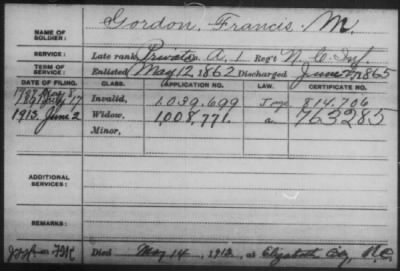 NAME OF SOLDIER: Gordon, Francis M.
SERVICE: Late rank Private Co. A, 1 Reg't N. C. Inf.
TERM OF SERVICE: Enlisted May 12, 1862 Discharged June 1865
DATE OF FILING. CLASS. APPLICATION NO. LAW. CERTIFICATE NO.
1891 July 17 Invalid, 1,039,699 814,706
1913 June 2 Widow, 1,008,771 763285
Minor,
ADDITIONAL SERVICES:
REMARKS:
Died May 14, 1913, at Elizabeth City, N.C.